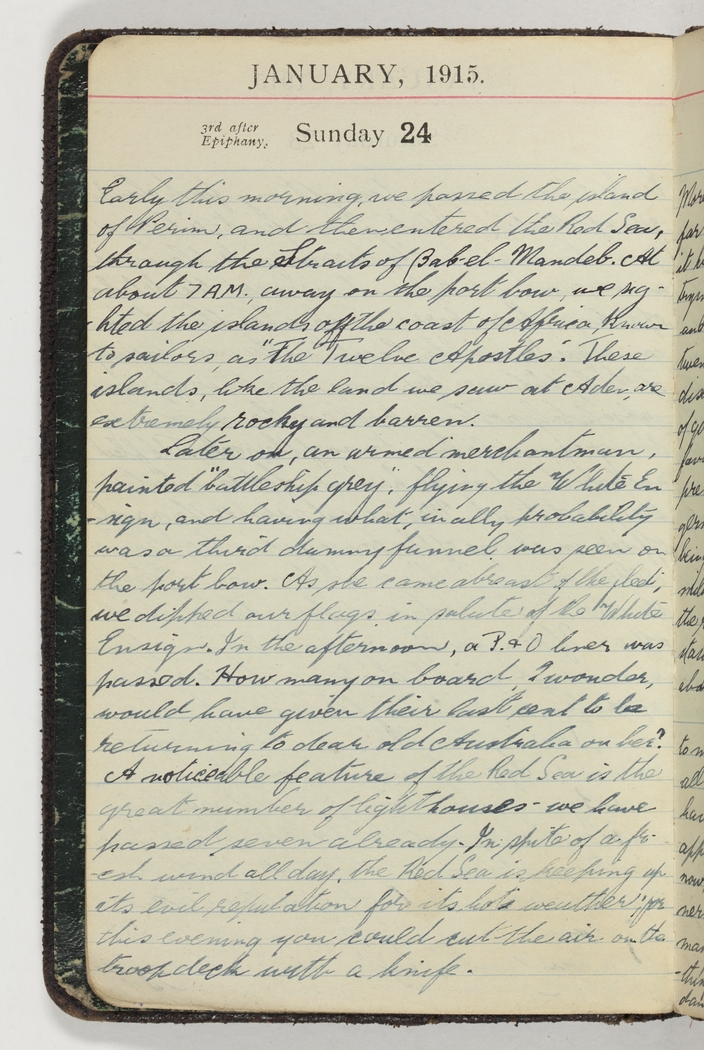 JANUARY, 1915.
3rd after
Epiphany.
Sunday 24
Early this morning, we passed the island
of Perim, and then entered the Red Sea,
through the Straits of Bab-el-Mandeb. At
about 7 AM., away on the port bow, we sig-
-hted the islands off the coast of Africa, known
to sailors, as "The Twelve Apostles". These
islands, like the land we saw at Aden, are
extremely rocky and barren.
Later on, an armed merchantman,
painted "battleship grey", flying the "White En
-sign, and having what, in all probability
was a third dummy funnel, was seen on
the port bow. As she came abreast of the
we dipped our flags in salute of the "White
Ensign. In the afternoon, a P. & O liner was
passed. How many on board, I wonder,
would have given their last cent to be
returning to dear old Australia on her?
A noticeable feature of the Red Sea is the
great number of lighthouses - we have
passed seven already. In spite of a fr-
-esh wind all day, the Red Sea is keeping up
its evil reputation for its hot weather; for
this evening you could cut the air on the
troopdeck with a knife.
More
far
it
and
dis
of
pre
being
the
to
all
now